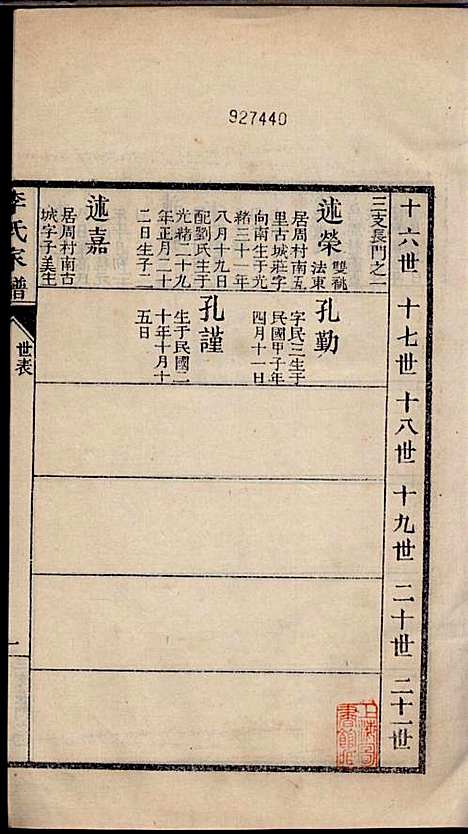 927440
十六世 十七世 十八世 十九世 二十世 二十一世
三支長門之一
述榮 雙祧
法東
居周村南五
里古城莊字
向南生于光
緒三十一年
八月十九日
配劉氏生于
光緒二十九
年正月二十
二日生子二
孔勤
字民三生于
民國甲子年
四月十一日
孔謹
生于民國二
十年十月十
五日
述嘉
居周村南古
城字子美生
李氏家譜
世表
一